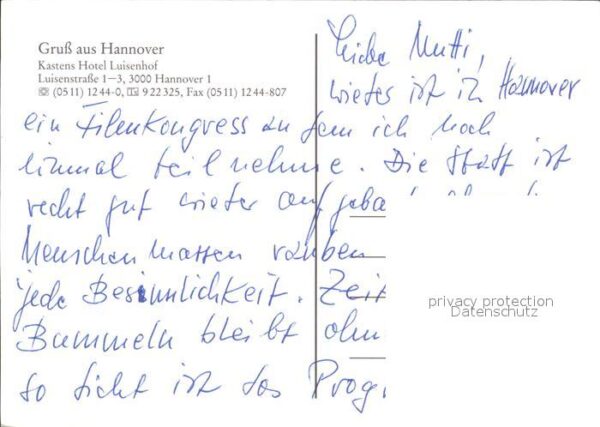 Gruß aus Hannover
Kastens Hotel Luisenhof
Luisenstraße 1–3, 3000 Hannover 1
☎ (05 11) 12 44-0, 9 22 325, Fax (05 11) 12 44-807
Liebe Mutti,
wieder ist in Hannover
ein Filenkongress an dem ich noch
einmal teilnehme. Die Stadt ist
recht gut wieder aufgeba
Menschenmassen rauben
jede Besinnlichkeit. Zeit
Bummeln bleibt ohn
so dicht ist das Prog
privacy protection
Datenschutz